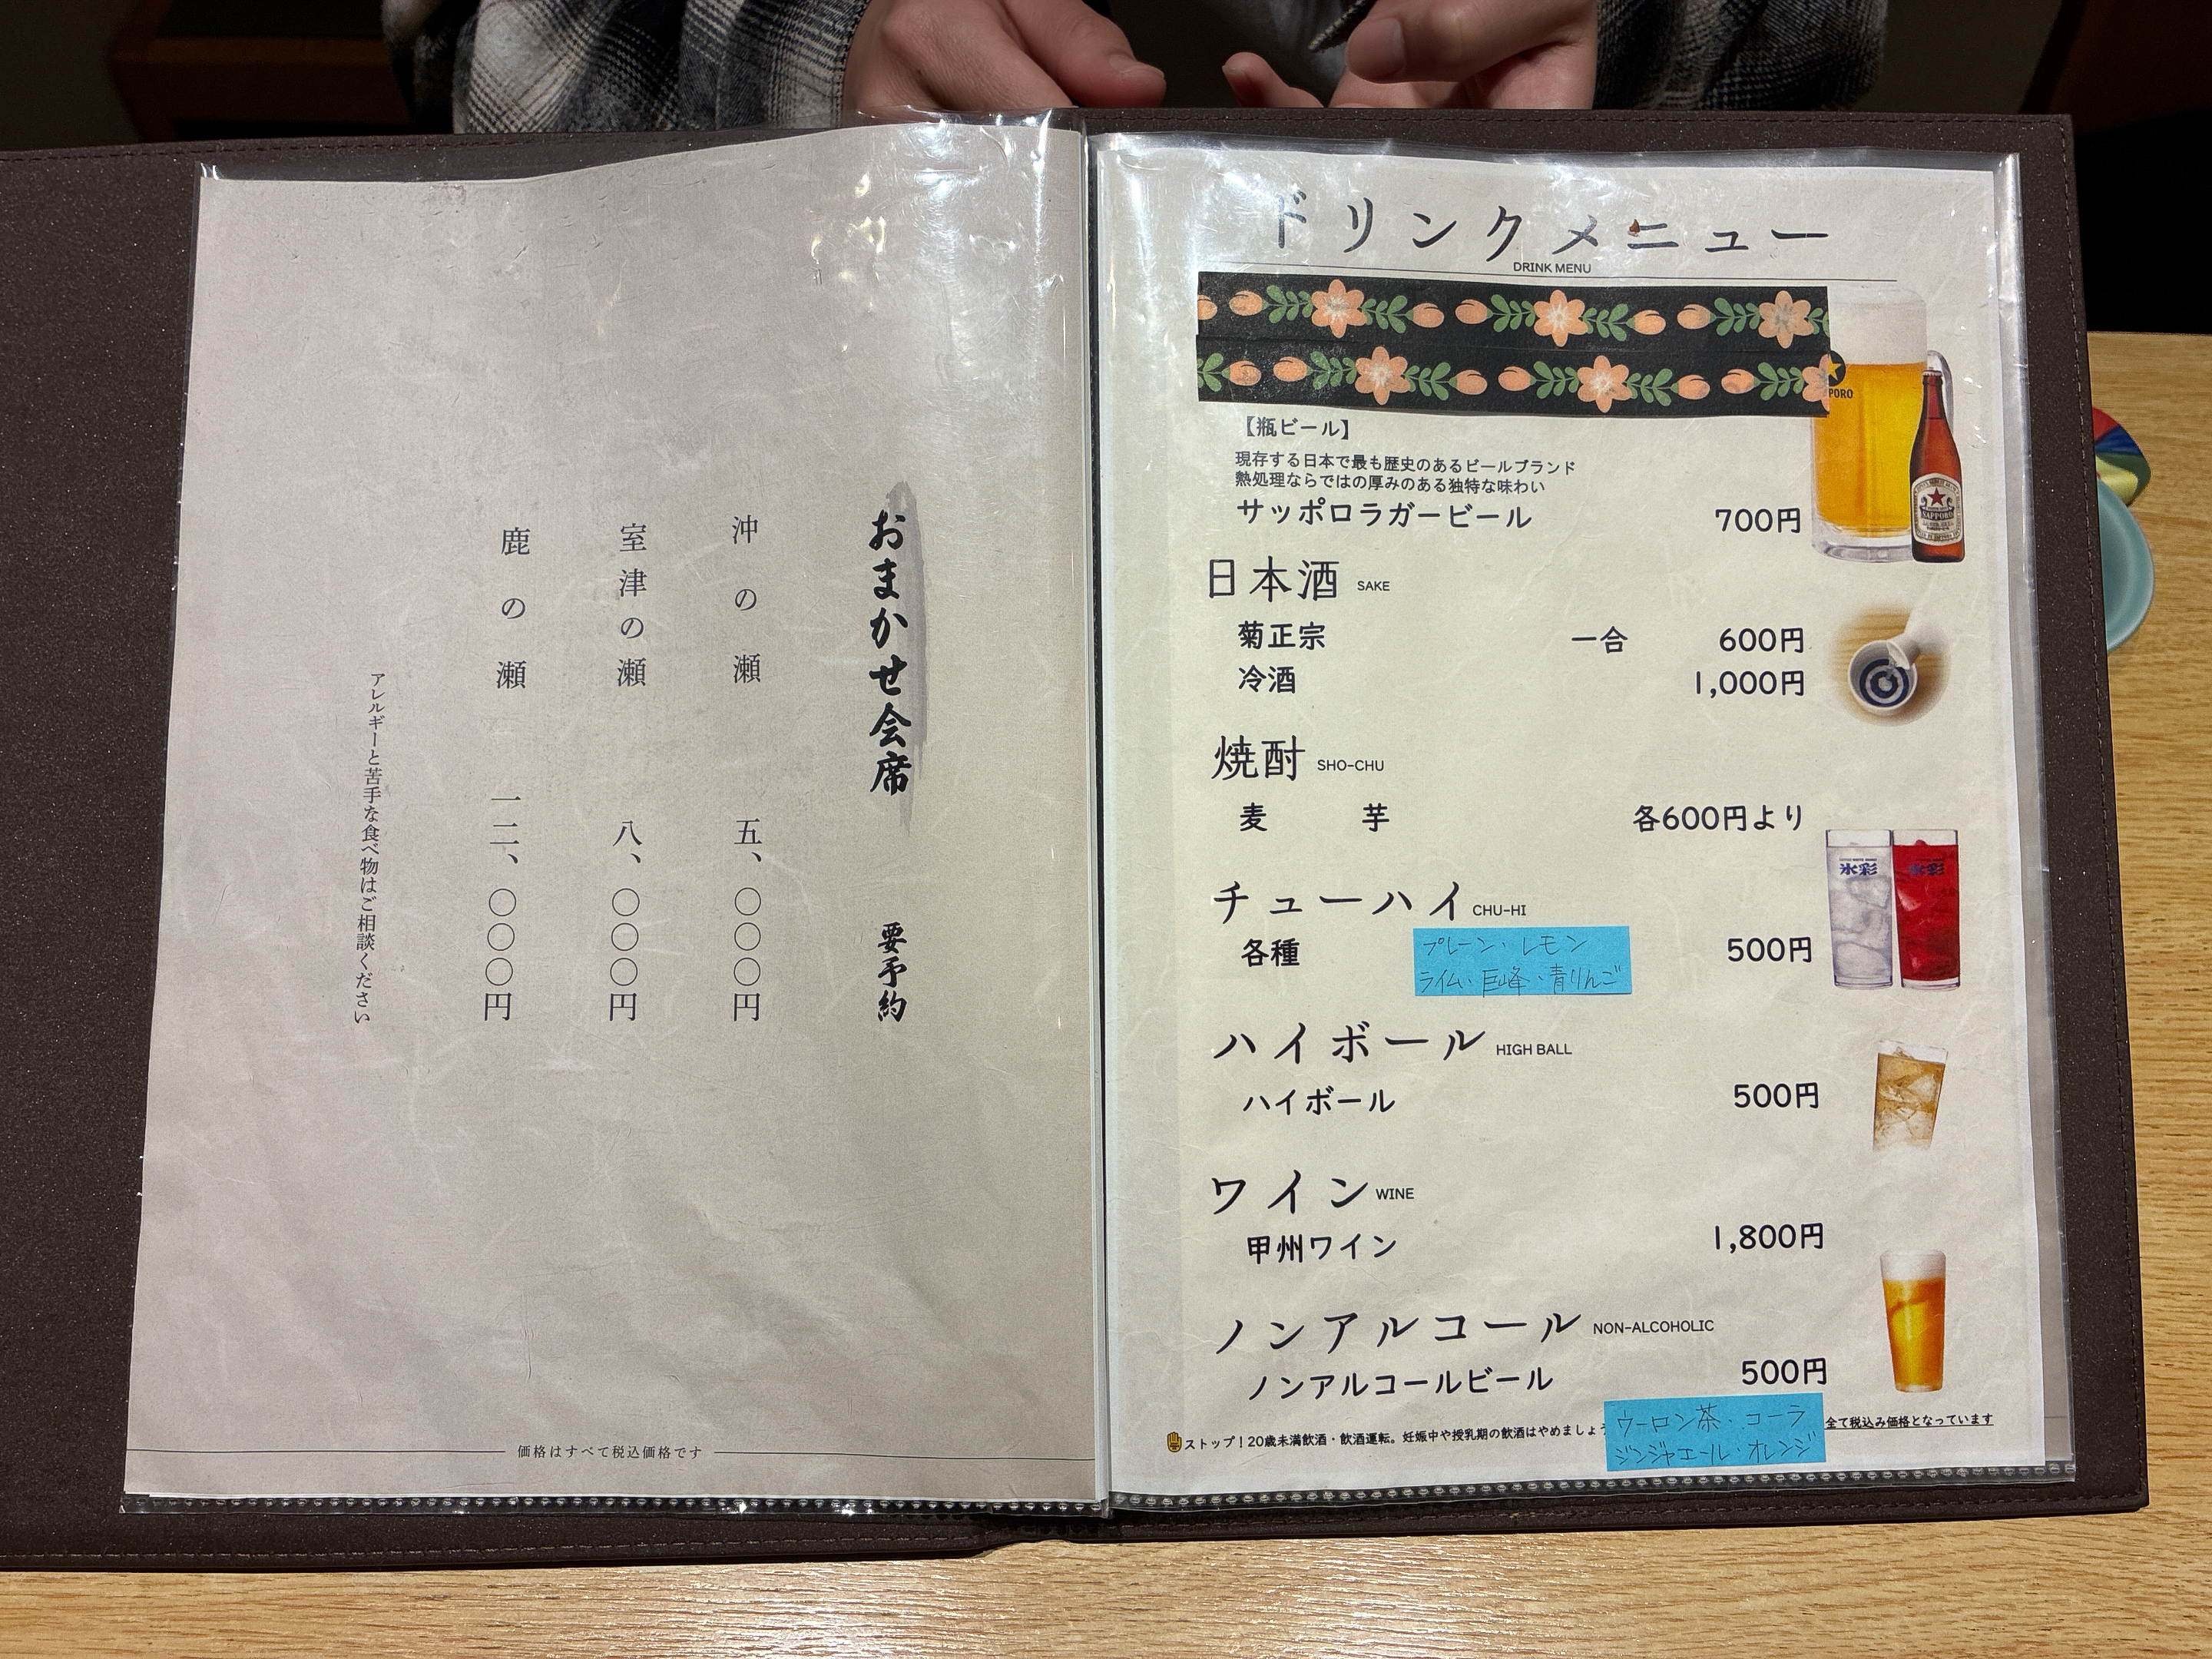 おまかせ会席 要予約
沖の瀬 五、〇〇〇円
室津の瀬 八、〇〇〇円
鹿の瀬 一二、〇〇〇円
アレルギーと苦手な食べ物はご相談ください
価格はすべて税込価格です
ドリンクメニュー
DRINK MENU
PORO
【瓶ビール】
現存する日本で最も歴史のあるビールブランド
熱処理ならではの厚みのある独特な味わい
サッポロラガービール 700円
SAPPORO
日本酒 SAKE
菊正宗 一合 600円
冷酒 1,000円
焼酎 SHO-CHU
麦 芋 各600円より
氷彩 氷彩
チューハイ CHU-HI
各種 500円
プレーン・レモン
ライム・巨峰・青りんご
ハイボール HIGH BALL
ハイボール 500円
ワイン WINE
甲州ワイン 1,800円
ノンアルコール NON-ALCOHOLIC
ノンアルコールビール 500円
ウーロン茶・コーラ
ジンジャエール・オレンジ
ストップ！20歳未満飲酒・飲酒運転。妊娠中や授乳期の飲酒はやめましょう
全て税込み価格となっています